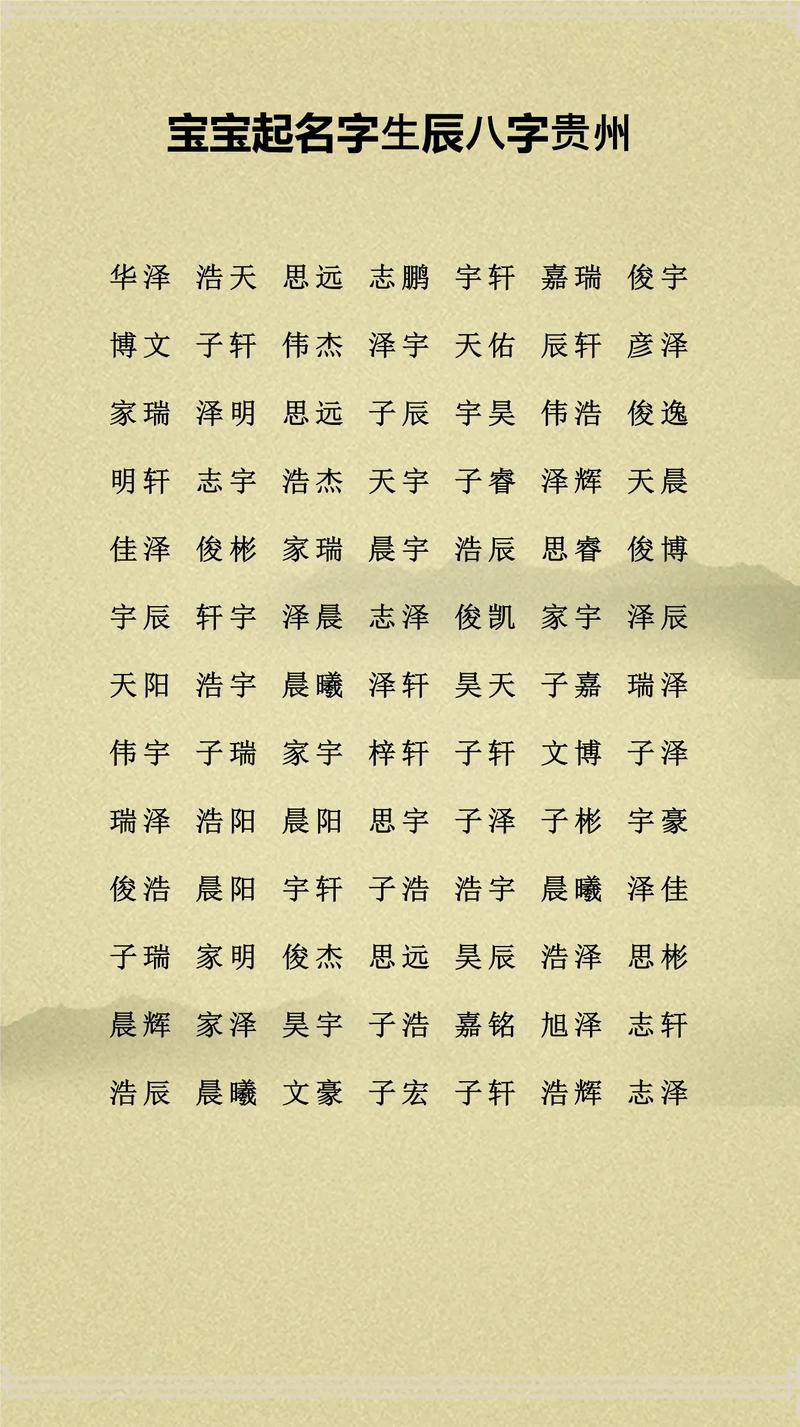 宝宝起名字生辰八字贵州
华泽 浩天 思远 志鹏 宇轩 嘉瑞 俊宇
博文 子轩 伟杰 泽宇 天佑 辰轩 彦泽
家瑞 泽明 思远 子辰 宇昊 伟浩 俊逸
明轩 志宇 浩杰 天宇 子睿 泽辉 天晨
佳泽 俊彬 家瑞 晨宇 浩辰 思睿 俊博
宇辰 轩宇 泽晨 志泽 俊凯 家宇 泽辰
天阳 浩宇 晨曦 泽轩 昊天 子嘉 瑞泽
伟宇 子瑞 家宇 梓轩 子轩 文博 子泽
瑞泽 浩阳 晨阳 思宇 子泽 子彬 宇豪
俊浩 晨阳 宇轩 子浩 浩宇 晨曦 泽佳
子瑞 家明 俊杰 思远 昊辰 浩泽 思彬
晨辉 家泽 昊宇 子浩 嘉铭 旭泽 志轩
浩辰 晨曦 文豪 子宏 子轩 浩辉 志泽